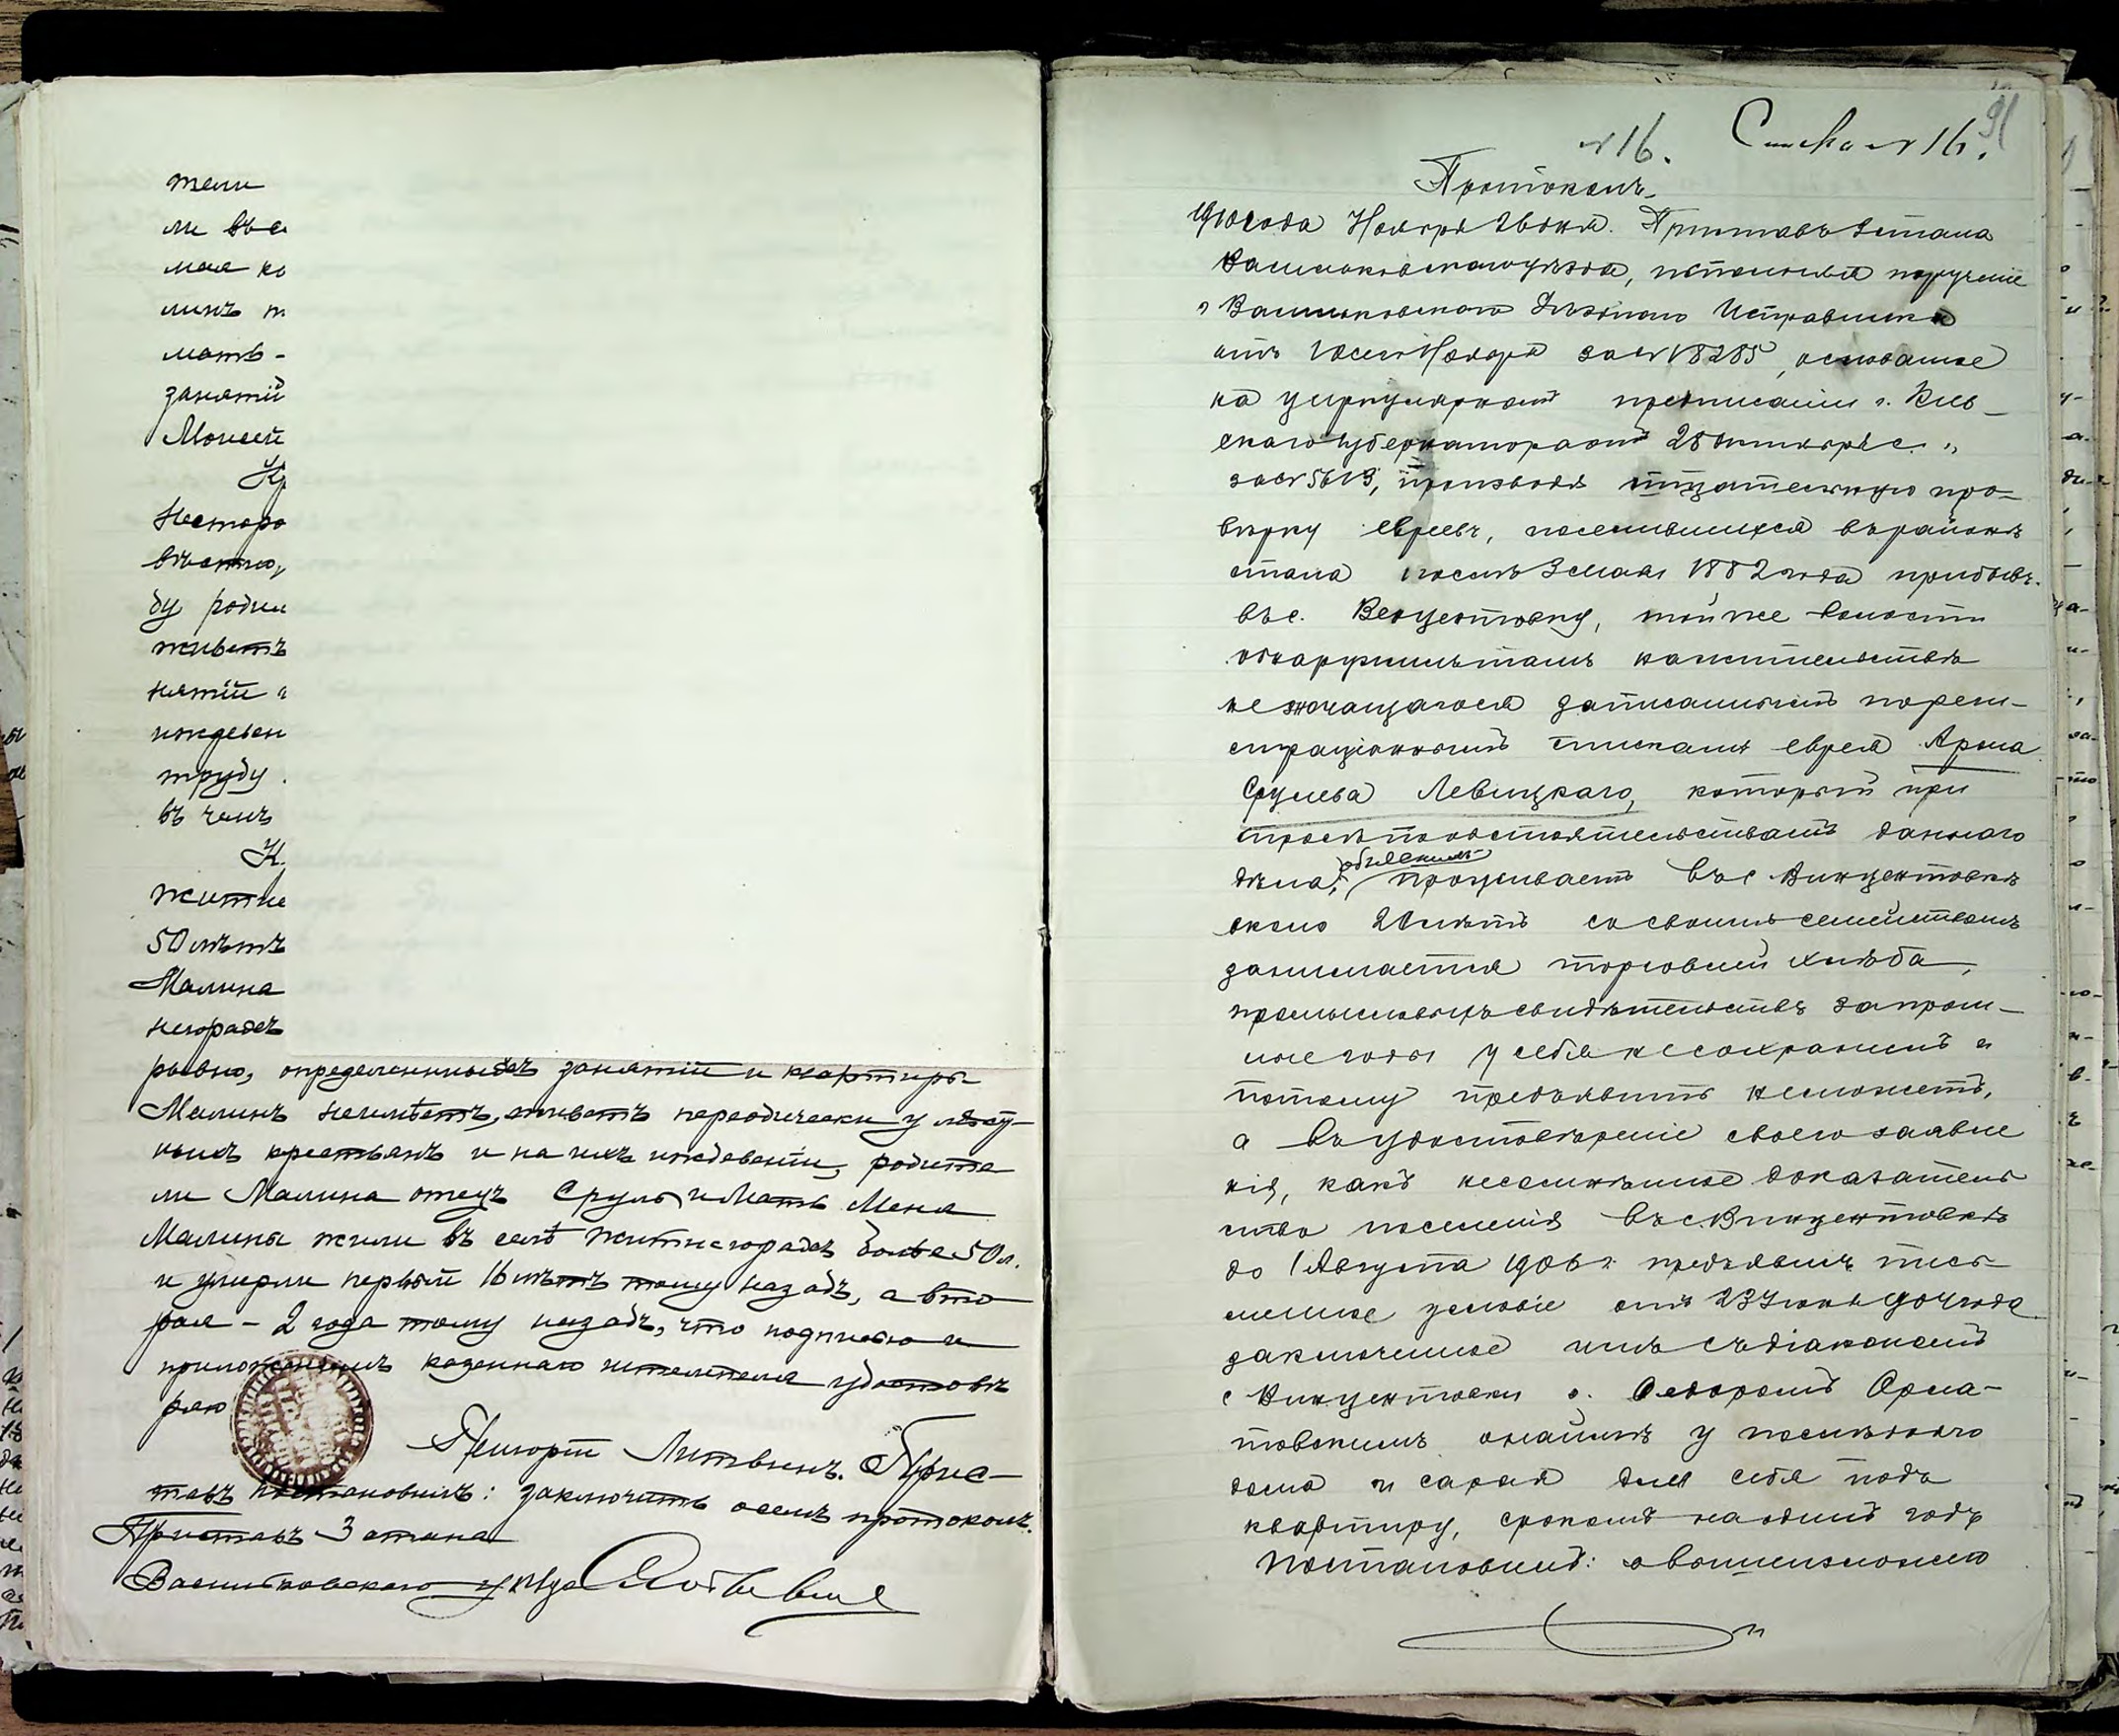 тели
ли въ с
мая ко
линъ п
мать -
занятій
Моисей
Кр
Нестеро
вѣстно,
ду роди
живетъ
нятій и
иждевен
труду
въ чемъ
К
Житне
50 лѣтъ
Малина
негорадеѣ
рывно, определенныхъ занятій и квартиры
Малинъ неимѣетъ, живетъ переодически у мѣст-
ныхъ крестьянъ и на ихъ иждевеніи, родите
ли Малина отецъ Сруль и Мать Меня
Малины жили въ селѣ Житнегорадеѣ более 50 л.
и умерли первый 16 лѣтъ тому назадъ, а вто
рая - 2 года тому назадъ, что подписью и
приложеніемъ казеннаго штемпеля удостовѣ
ряю
Григорій Литвинъ. Прис-
тавъ постановилъ: заключить осемъ протоколъ.
Приставъ 3 стана
Васильковскаго уѣзда
91
№ 16. Списка № 16.
Протоколъ
1910 года Ноября 26 дня. Приставъ 3 стана
Васильковскаго уѣзда, исполняя порученіе
г Васильковскаго Уѣзднаго Исправника
отъ Ноября за № 18285, основанное
на циркулярномъ предписаніи г. Кіев-
скаго Губернатора отъ 28 Октября с. г.
за № 5613, производя тщательную про-
вѣрку евреевъ, поселившихся въ районѣ
стана послѣ 3 мая 1882 года прибывъ
въ с. Венцентовку, той же волости
обнаружилъ тамъ на жительствѣ
не значащагося записаннымъ по реги-
страціоннымъ спискамъ еврея Арона
Срулева Левицкаго, который при
спросѣ по обстоятельствамъ даннаго
дѣла, объяснилъ: проживаетъ въ с Винцентовкѣ
около 20 лѣтъ со своимъ семействомъ
занимается торговлей хлѣба,
промысловыхъ свидѣтельствъ за прош-
лые годы у себя не сохранилъ и
потому предъявить не можетъ,
а въ удостовѣреніе своего заявле
нія, какъ несомнѣнное доказатель
ство поселенія въ с. Винцентовкѣ
до 1 Августа 1906 г. предъявилъ пись-
менное условіе отъ 23 Іюня 904 года
заключенное имъ съ діакономъ
с Винцентовки о. Федоромъ
о наймѣ у послѣдняго
дома и сарая для себя подъ
квартиру, срокомъ на одинъ годъ
Постановилъ: о вышеизложен